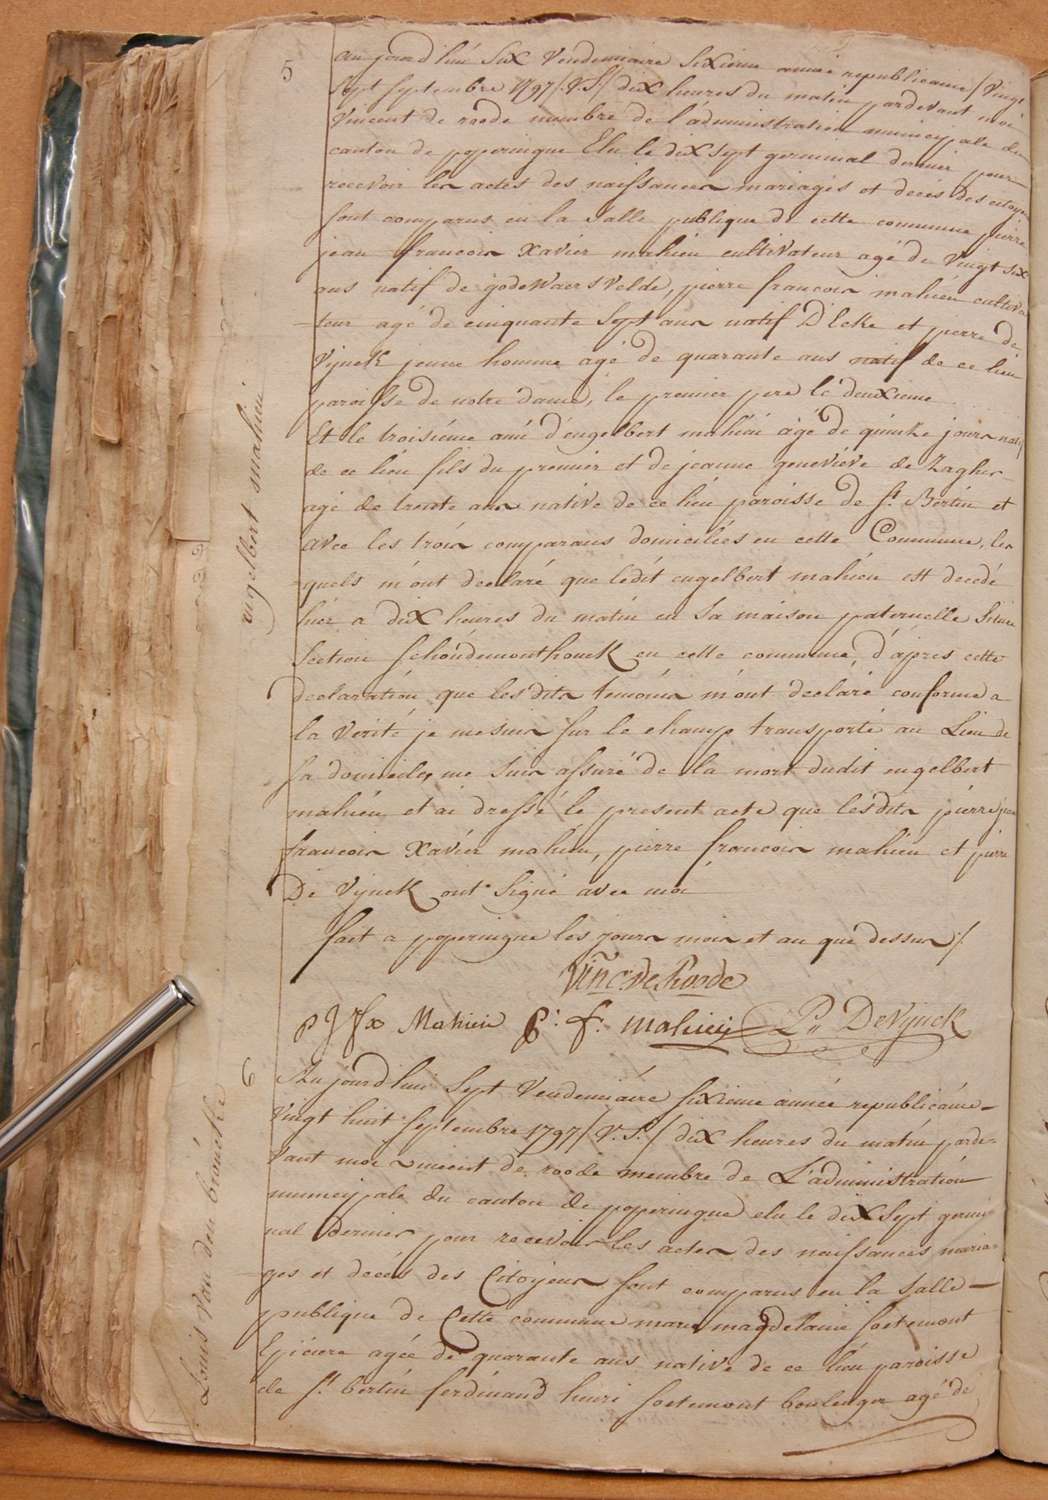 5
Au jourd'hui Six Vendemiaire Sixieme année republicaine / Vingt
Sept Septembre 1797 /.V.S/ dix heures du matin pardevant moi
Vincent de roode membre de l'administration municipale du
canton de poperingue Elu le dix sept germinal dernier pour
recevoir les actes des naissances mariages et décès des citoyens
sont comparus en la Salle publique de cette commune pierre
jean francois Xavier mahieu cultivateur agé de Vingt six
ans natif de godewaersvelde, pierre francois mahieu cultiva
-teur agé de cinquante Sept ans natif D'Ecke et pierre de
Vynck jeune homme agé de quarante ans natif de ce lieu
paroisse de notre dame, le premier pere le deuxieme
Et le troisiéme ami d'engelbert mahieu agé de quinze jours natif
de ce lieu fils du premier et de jeanne geneviéve de Zagher
agé de trente ans native de ce lieu paroisse de St. Bertin et
avec les trois comparans domiciliés en cette Commune, les
quels m'ont declaré que lédit engelbert mahieu est decedé
hier a dix heures du matin en Sa maison paternelle Située
Section Schoudemonthouck en cette commune, d'après cette
declaration que lesdits temoins m'ont declaré conforme a
la Verité je me suis sur le champ transporté au Lieu de
sa domicile, me suis assuré de la mort dudit engelbert
mahieu et ai dressé le present acte que lesdits pierre jean
francois Xávier mahieu, pierre francois mahieu et pierre
De Vynck ont Signé avec moi
fait a poperingue les jours mois et an que dessus /.
Vinc. De Roode
p J fx Mahieu P: f. mahieu P.. DeVynck
engelbert mahieu
6
Aujourd'hui Sept Vendemiaire Sixieme année republicaine
Vingt huit Septembre 1797 / V.S. / dix heures du matin parde-
vant moi vincent de roode membre de L'administration
municipale du canton de poperingue elu le dix Sept germi
nal dernier pour recevoir les actes des naissances maria-
ges et décès des Citoyens sont comparus en la Salle
publique de Cette commune marie magdelaine foetemont
Epiciere agée de quarante ans native de ce lieu paroisse
de St. bertin ferdinand henri foetemont boulanger agé de
Louis Van den